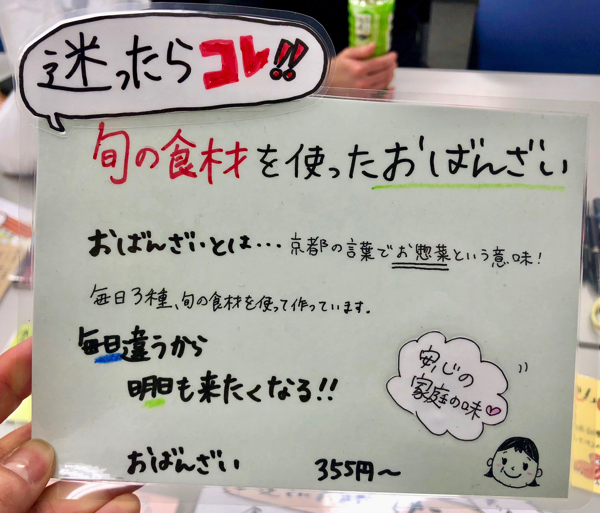 迷ったらコレ!!
旬の食材を使ったおばんざい
おばんざいとは…京都の言葉でお惣菜という意味!
毎日3種、旬の食材を使って作っています。
毎日違うから
明日も来たくなる!!
安心の
家庭の味
おばんざい 355円〜